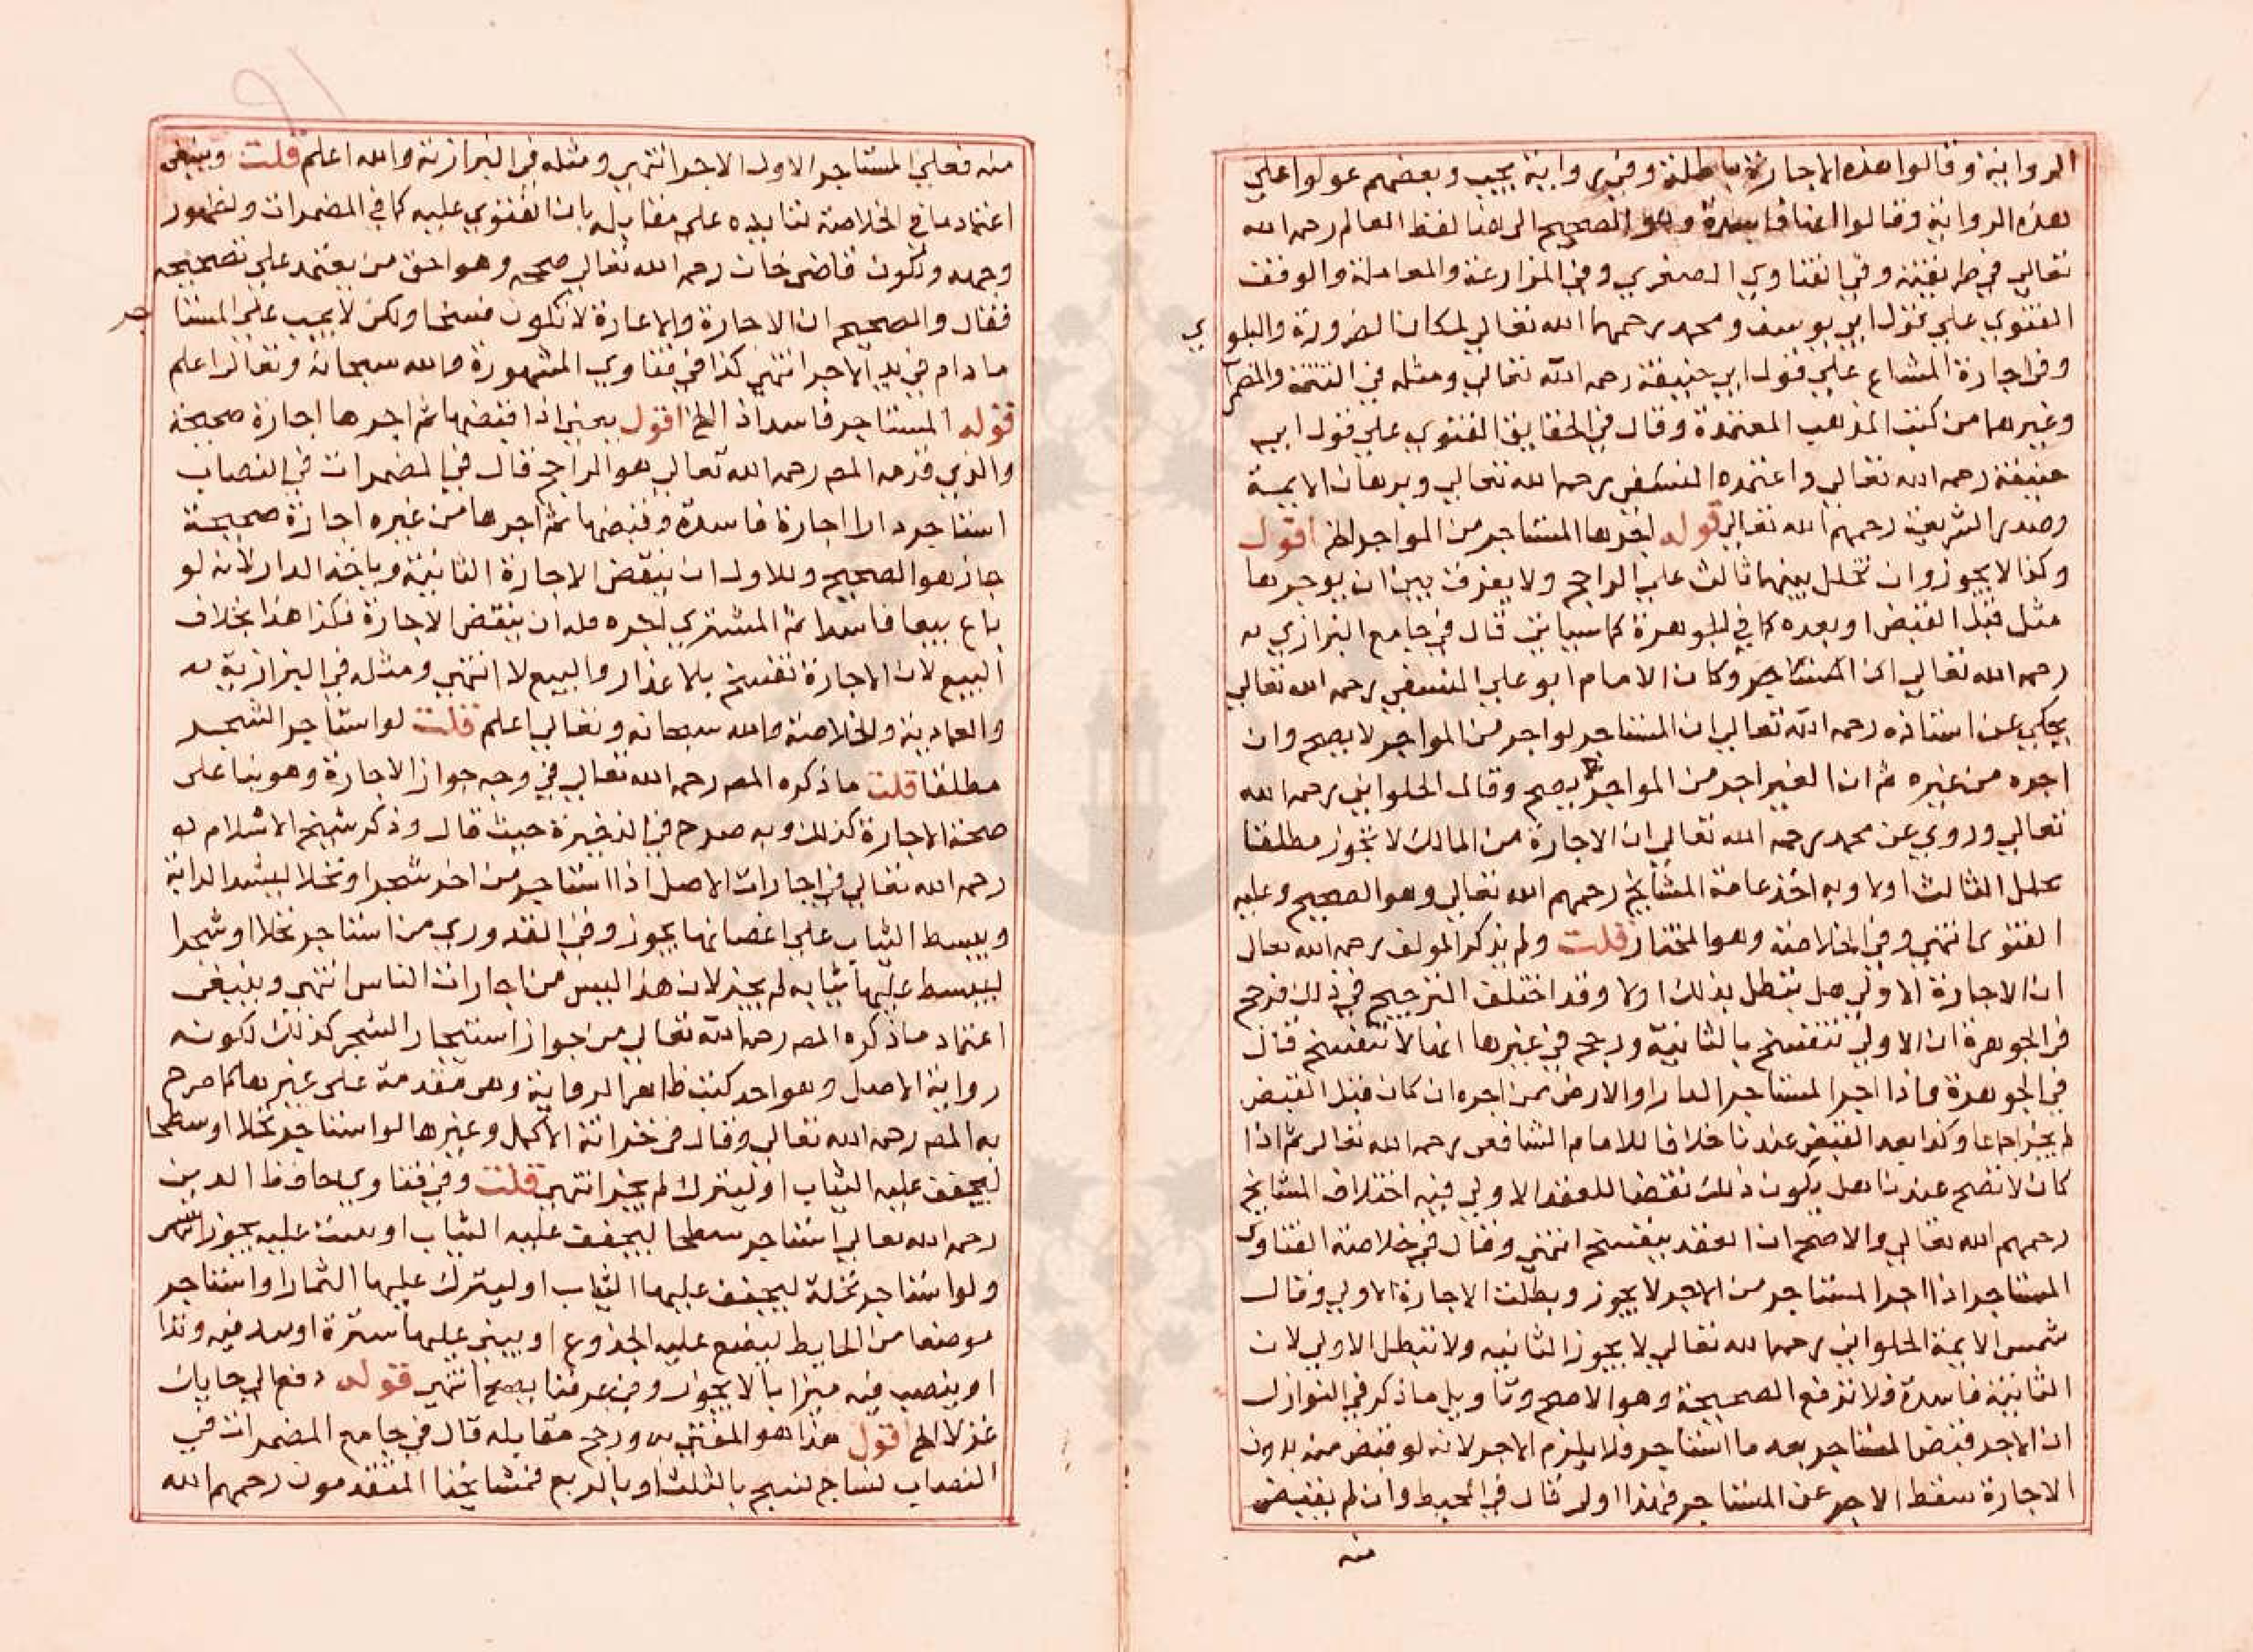 الرواية وقالوا هذه الاجارة باطلة وفي رواية يجب وبعضهم عولوا علي
هذه الرواية وقالوا انها فاسدة وهو الصحيح الي هنا لفظ العالم رحمه الله
تعالي في طريقته وفي الفتاوي الصغري وفي المزارعة والمعاملة والوقف
الفتوي علي قول ابي يوسف ومحمد رحمهما الله تعالي لمكان الضرورة والبلوي
وفي اجارة المشاع علي قول ابي حنيفة رحمه الله تعالي ومثله في التتمة والمضمرات
وغيرها من كتب المذهب المعتمدة وقال في الحقايق الفتوي علي قول ابي
حنيفة رحمه الله تعالي واعتمده النسفي رحمه الله تعالي وبرهان الايمة
وصدر الشريعة رحمهم الله تعالي قوله اجرها المستاجر من المواجر الخ اقول
وكذا لا يجوز وان تخلل بينهما ثالث علي الراجح ولا يفرق بين ان يوجرها
مثل قبل القبض او بعده كما في الجوهرة كما سياتي قال في جامع البزازي به
رحمه الله تعالي اذن المستاجر وكان الامام ابو علي النسفي رحمه الله تعالي
يحكي عن استاذه رحمه الله تعالي ان المستاجر لو اجر من المواجر لا يصح وان
اجره من غيره ثم ان الغير اجر من المواجر يصح وقال الحلواني رحمه الله
تعالي وروي عن محمد رحمه الله تعالي ان الاجارة من المالك لا تجوز مطلقا
تخلل الثالث اولا وبه اخذ عامة المشايخ رحمهم الله تعالي وهو الصحيح وعليه
الفتوي انتهي وفي الخلاصة وهو المختار قلت ولم يذكر المولف رحمه الله تعالي
ان الاجارة الاولي هل تبطل بذلك اولا وقد اختلف الترجيح في ذلك فرجح
في الجوهرة ان الاولي تنفسخ بالثانية ورجح في غيرها انها لا تنفسخ قال
في الجوهرة واذا اجر المستاجر الدار او الارض ممن اجره ان كان قبل القبض
لم يجز اجماعا وكذا بعد القبض عندنا خلافا للامام الشافعي رحمه الله تعالي ثم اذا
كان لا تصح عندنا هل يكون ذلك نقضا للعقد الاولي فيه اختلاف المشايخ
رحمهم الله تعالي والاصح ان العقد ينفسخ انتهي وقال في خلاصة الفتاوي
المستاجر اذا اجر المستاجر من الاجر لا يجوز وبطلت الاجارة الاولي وقال
شمس الايمة الحلواني رحمه الله تعالي لا يجوز الثانيه ولا تبطل الاولي لان
الثانية فاسدة فلا ترفع الصحيحة وهو الاصح وتاويل ما ذكر في النوازل
ان الاجر قبض المستاجر بعد ما استاجر فلا يلزم الاجر لانه لو قبض منه بدون
الاجارة سقط الاجر عن المستاجر فهذا اولي قال في المحيط وان لم يقبض
منه
منه فعلي المستاجر الاول الاجر انتهي ومثله في البزازية والله اعلم قلت وينبغي
اعتماد ما في الخلاصة لتاييده علي مقابله بان الفتوي عليه كما في المضمرات ولظهور
وجهه ولكون قاضي خان رحمه الله تعالي صححه وهو احق من يعتمد علي تصحيحه
فقال والصحيح ان الاجارة والاعارة لا تكون فسخا ولكن لا يجب علي المستاجر
ما دام في يد الاجر انتهي كذا في فتاوي المشهورة والله سبحانه وتعالي اعلم
قوله المستاجر فاسدا اذا الخ اقول يعني اذا قبضها ثم اجرها اجارة صحيحة
والذي قدمه المص رحمه الله تعالي هو الراجح قال في المضمرات في النصاب
استاجر دارا اجارة فاسدة وقبضها ثم اجرها من غيره اجارة صحيحة
جاز هو الصحيح وللاول ان ينقض الاجارة الثانية وياخذ الدار لانه لو
باع بيعا فاسدا ثم المشتري اجره فله ان ينقض الاجارة فكذا هذا بخلاف
البيع لان الاجارة تفسخ بالاعذار والبيع لا انتهي ومثله في البزازية
والعمادية والخلاصة والله سبحانه وتعالي اعلم قلت لو استاجر الشجر
مطلقا قلت ما ذكره المص رحمه الله تعالي في وجه جواز الاجارة وهو بنا علي
صحة الاجارة كذلك وبه صرح في الذخيرة حيث قال وذكر شيخ الاسلام
رحمه الله تعالي في اجارات الاصل اذا استاجر من اخر شجرا ونخلا ليشد الدابة
ويبسط الثياب علي اغصانها يجوز وفي القدوري من استاجر نخلا او شجرا
ليبسط عليها ثيابه لم يجز لان هذا ليس من اجارات الناس انتهي وينبغي
اعتماد ما ذكره المص رحمه الله تعالي من جواز استيجار الشجر كذلك لكونه
رواية الاصل وهو احد كتب ظاهر الرواية وهي مقدمة علي غيرها كما صرح
به المص رحمه الله تعالي وقال في خزانة الاكمل وغيرها لو استاجر نخلا او سطحا
ليجفف عليه الثياب او ليترك لم يجز انتهي قلت وفي فتاوي حافظ الدين
رحمه الله تعالي استاجر سطحا ليجفف عليه الثياب او يبيت عليه يجوز
ولو استاجر نخلة ليجفف عليها الثياب او ليترك عليها الثمار او استاجر
موضعا من الحايط ليضع عليه الجذوع او يبني عليها سترة او
او ينصب فيه ميزابا لا يجوز وفي عرفنا يصح انتهي قوله دفع الي حايك
غزلا الخ اقول هذا هو المفتي به ورجح مقابله قال في جامع المضمرات في
النصاب نساج لنسج بالثلث او بالربع فمشايخنا المتقدمون رحمهم الله